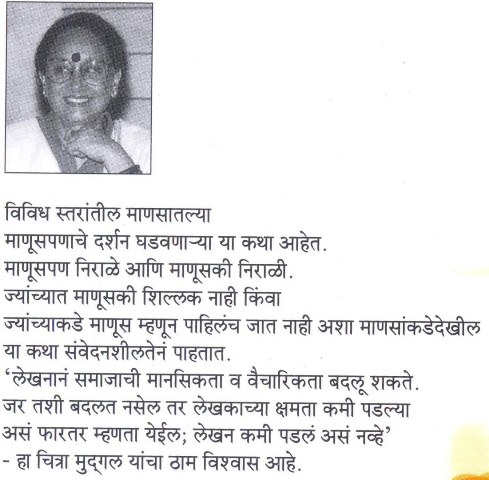 विविध स्तरांतील माणसातल्या
माणूसपणाचे दर्शन घडवणाऱ्या या कथा आहेत.
माणूसपण निराळे आणि माणूसकी निराळी.
ज्यांच्यात माणूसकी शिल्लक नाही किंवा
ज्यांच्याकडे माणूस म्हणून पाहिलंच जात नाही अशा माणसांकडेदेखील
या कथा संवेदनशीलतेनं पाहतात.
‘लेखनानं समाजाची मानसिकता व वैचारिकता बदलू शकते.
जर तशी बदलत नसेल तर लेखकाच्या क्षमता कमी पडल्या
असं फारतर म्हणता येईल; लेखन कमी पडलं असं नव्हे’
- हा चित्रा मुद्‌गल यांचा ठाम विश्वास आहे.